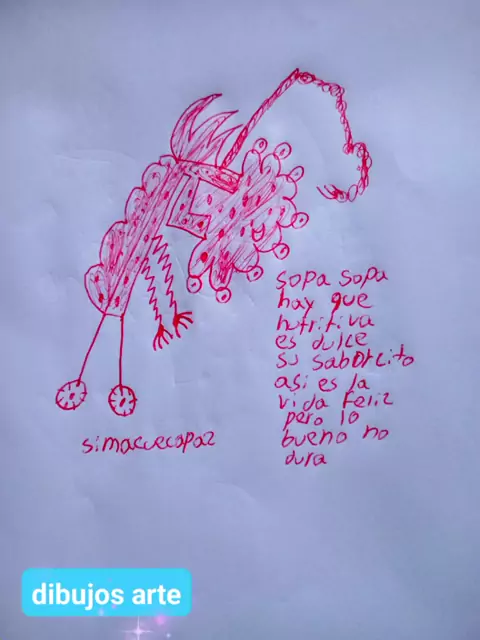 sopa sopa
hay que
nutritiva
es dulce
su saborcito
asi es la
vida feliz
pero lo
bueno no
dura
simacuecapaz
dibujos arte